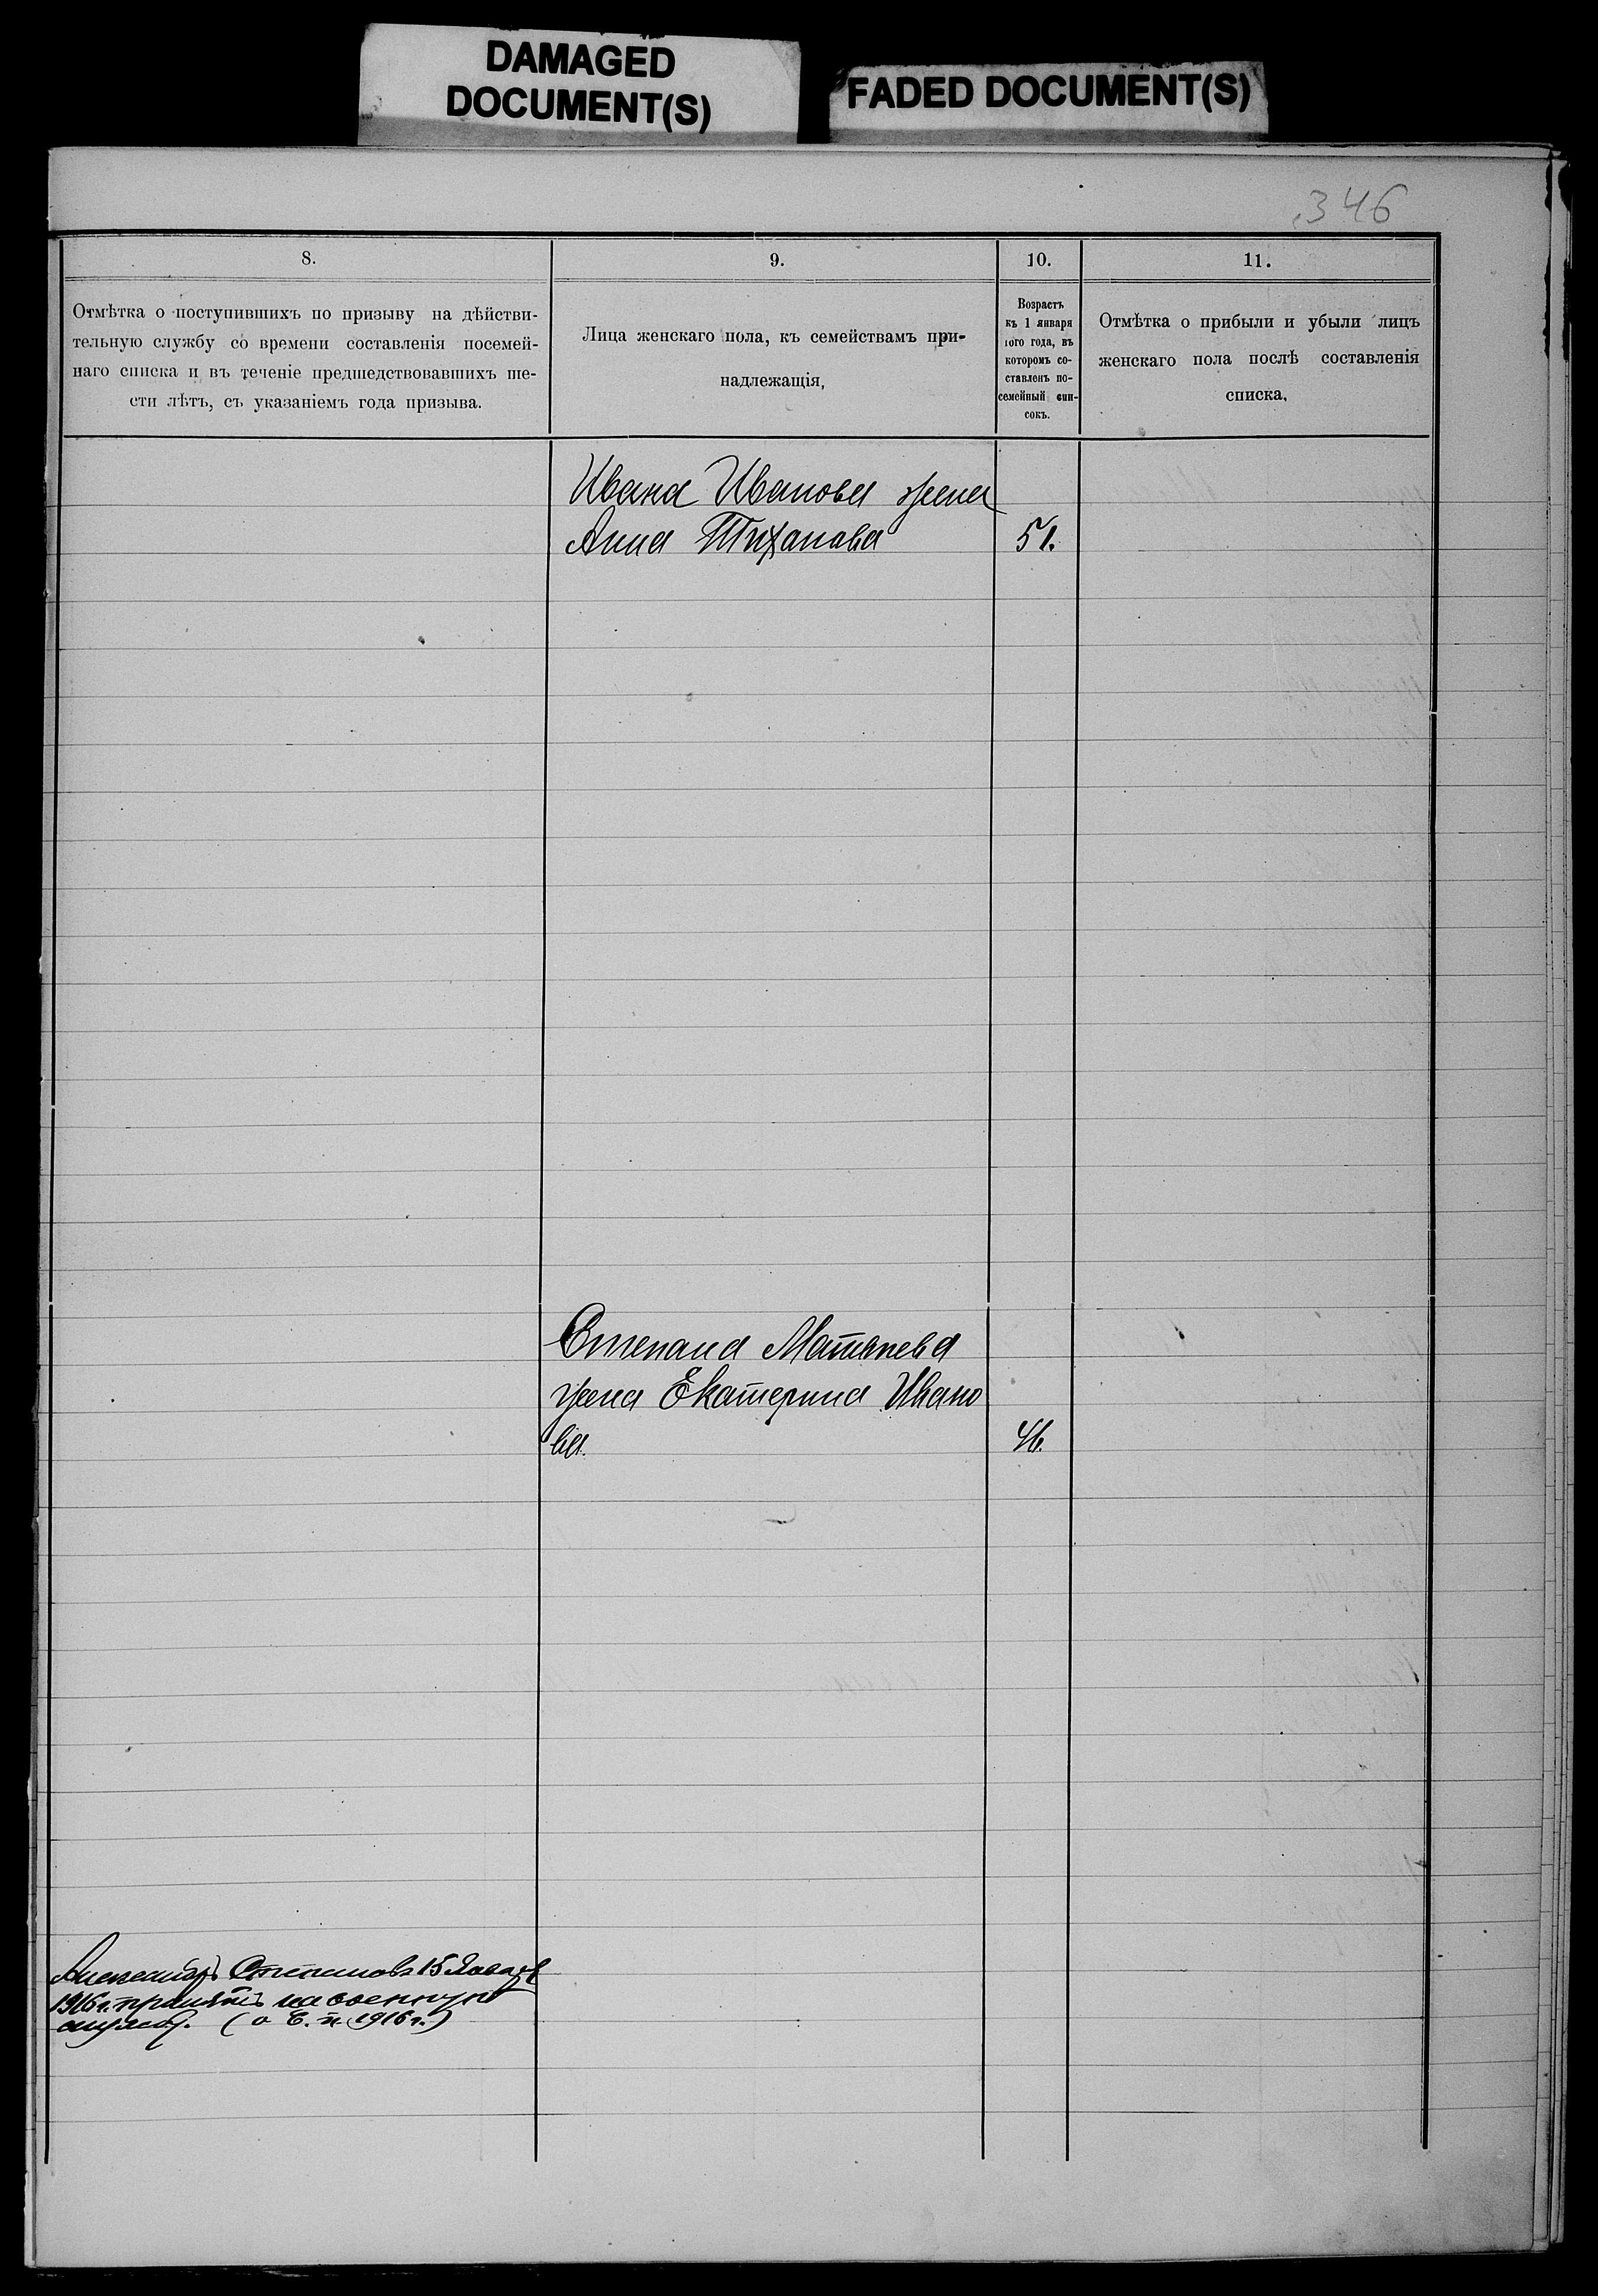 DAMAGED
DOCUMENT(S)
FADED DOCUMENT(S)
346
8.
9.
10.
11.
Отмѣтка о поступившихъ по призыву на дѣйстви-
тельную службу со времени составленія посемей-
наго списка и въ теченіе предшедствовавшихъ ше-
сти лѣтъ, съ указаніемъ года призыва.
Лица женскаго пола, къ семействамъ при-
надлежащія,
Возрастъ
къ 1 января
того года, въ
которомъ со-
ставленъ по-
семейный спи-
сокъ.
Отмѣтка о прибыли и убыли лицъ
женскаго пола послѣ составленія
списка,
Ивана Иванова жена
Анна Тиханова 51.
Степана Матвѣева
жена Екатерина Ивано
ва. 46.
Александръ Степановъ 15 Января
1916 г. принятъ на военную
службу. (о С. п. 1916 г.)